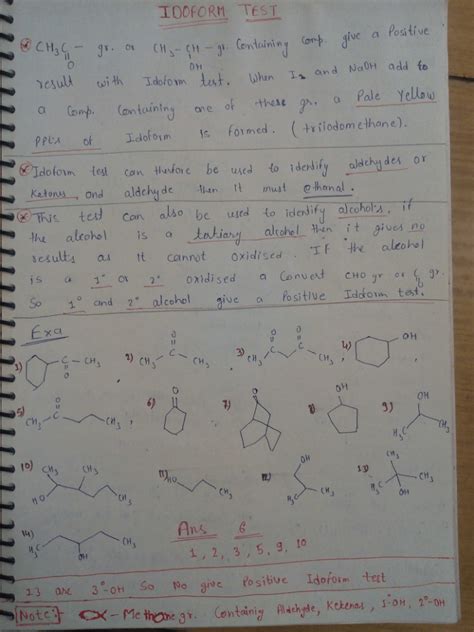 IDOFORM TEST
CH3C - gr. or CH3 - CH - gr. Containing comp. give a Positive
O OH
result with Idoform test. When I2 and NaOH add to
a Comp. Containing one of these gr. a Pale Yellow
PPts of Idoform is formed. (triiodomethane).
Idoform test can therfore be used to identify aldehydes or
Ketones and aldehyde then it must ethanal.
This test can also be used to identify alcohols, if
the alcohol is a tertiary alcohol then it gives no
results as it cannot Oxidised. If the alcohol
is a 1° or 2° oxidised a Convert CHO gr or C gr.
O
So 1° and 2° alcohol give a Positive Idoform test.
Exa
1) C - CH3 O
2) CH3 C CH3 O
3) CH3 C C CH3 O O
4) OH
5) CH3 O CH3
6) O
7) O
8) OH
9) OH CH3 H3C
10) CH3 CH3 HO CH3
11) HO CH3
12) OH CH3 H3C
13) CH3 CH3 H3C OH
14) H3C OH CH3
Ans 6
1, 2, 3, 5, 9, 10
13 are 3°-OH So No give Positive Idoform test
Note:- α - Methane gr. Containiy Aldehyde, Ketenas, 1°-OH, 2°-OH